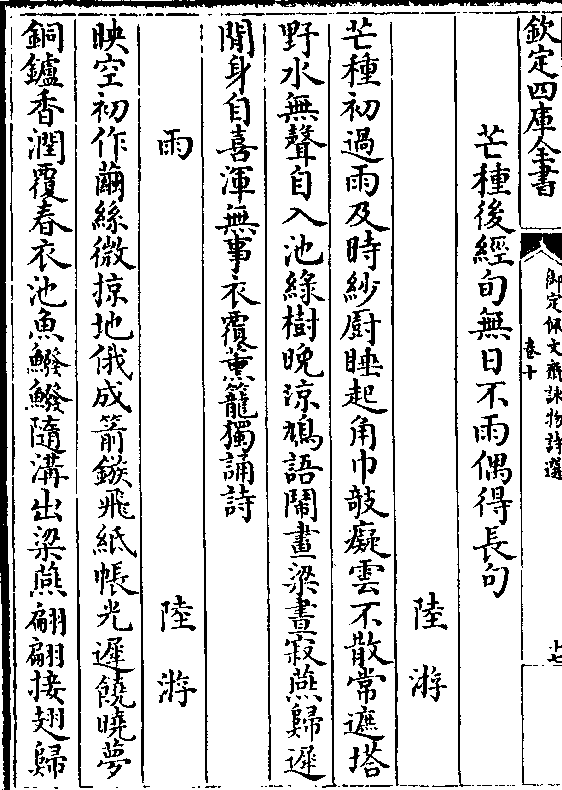 欽定四庫全書
御定佩文齋詠物詩選
卷十
十七
芒種後經旬無日不雨偶得長句
陸游
芒種初過雨及時紗廚睡起角巾攲癡雲不散常遮塔
野水無聲自入池綠樹晚涼鳩語鬧畫梁晝寂燕歸遲
閒身自喜渾無事衣覆熏籠獨誦詩
雨
陸游
映空初作繭絲微掠地俄成箭鏃飛紙帳光遲饒曉夢
銅鑪香潤覆春衣池魚鱍鱍隨溝出梁燕翩翩接翅歸